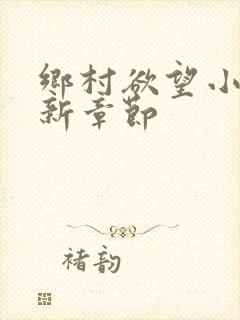 鄉村欲望小
新章節
褚韵